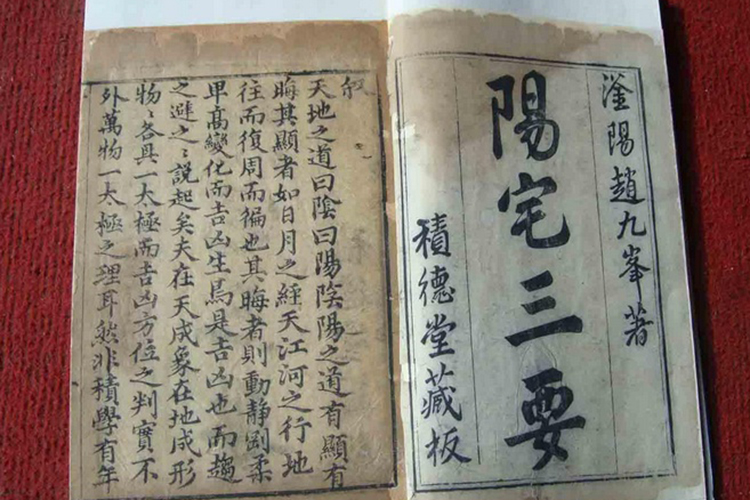 滏陽趙九峯著
陽宅三要
積德堂藏板
叙
天地之道曰陰曰陽陰陽之道有顯有
晦其顯者如日月之經天江河之行地
往而復周而徧也其晦者則動静剛柔
甲高變化而吉凶生焉是吉凶也而趨
之避之〻說起矣夫在天成象在地成形
物〻各具一太極而吉凶方位之判實不
外萬物一太極之理耳然非積學有年